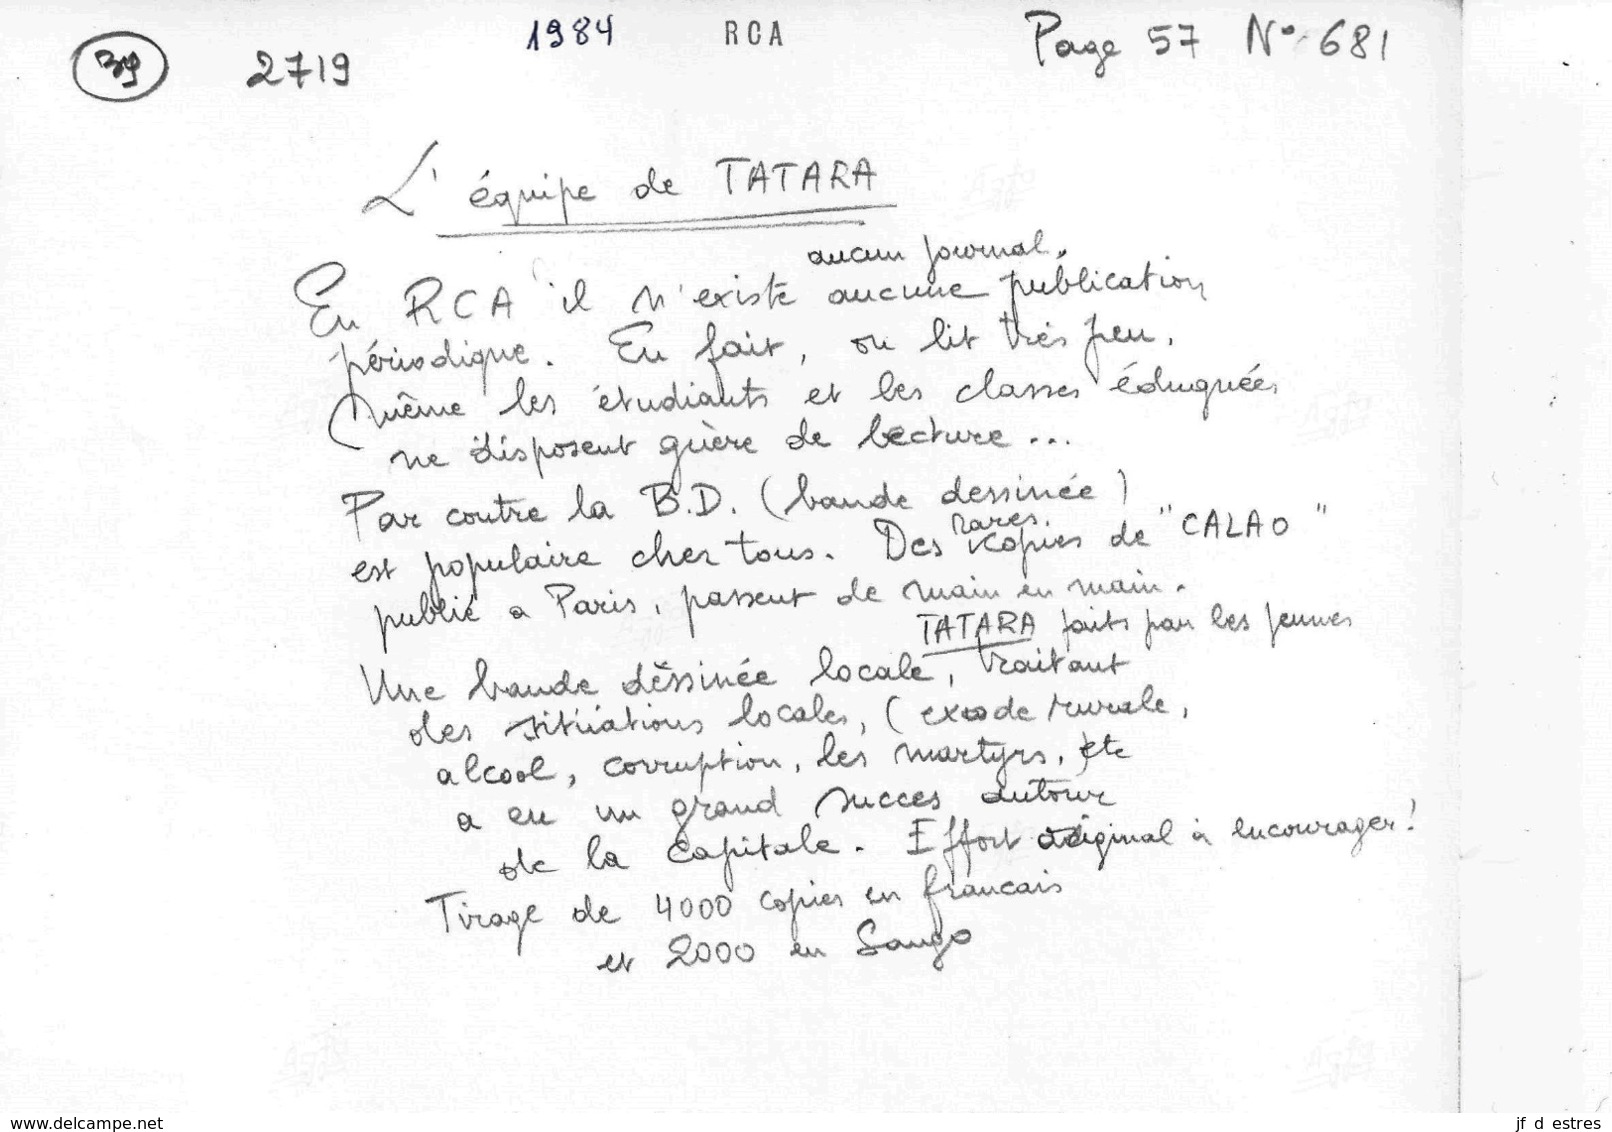 39 2719 1984 RCA Page 57 N° 681
L'équipe de TATARA
aucun journal.
En RCA il n'existe aucune publication
périodique. En fait, on lit très peu.
même les étudiants et les classes éduquées
ne disposent guère de lecture ...
Par contre la B.D. (bande dessinée)
rares
est populaire chez tous. Des copies de "CALAO"
publié a Paris, passent de main en main.
TATARA faits par les jeunes
Une bande dessinée locale, traitant
des situations locales, (exode rurale,
alcool, corruption, les martyrs, etc
a eu un grand succes autour
de la capitale. Effort original à encourager!
Tirage de 4000 copies en francais
et 2000 en Sango
www.delcampe.net
jf d estres